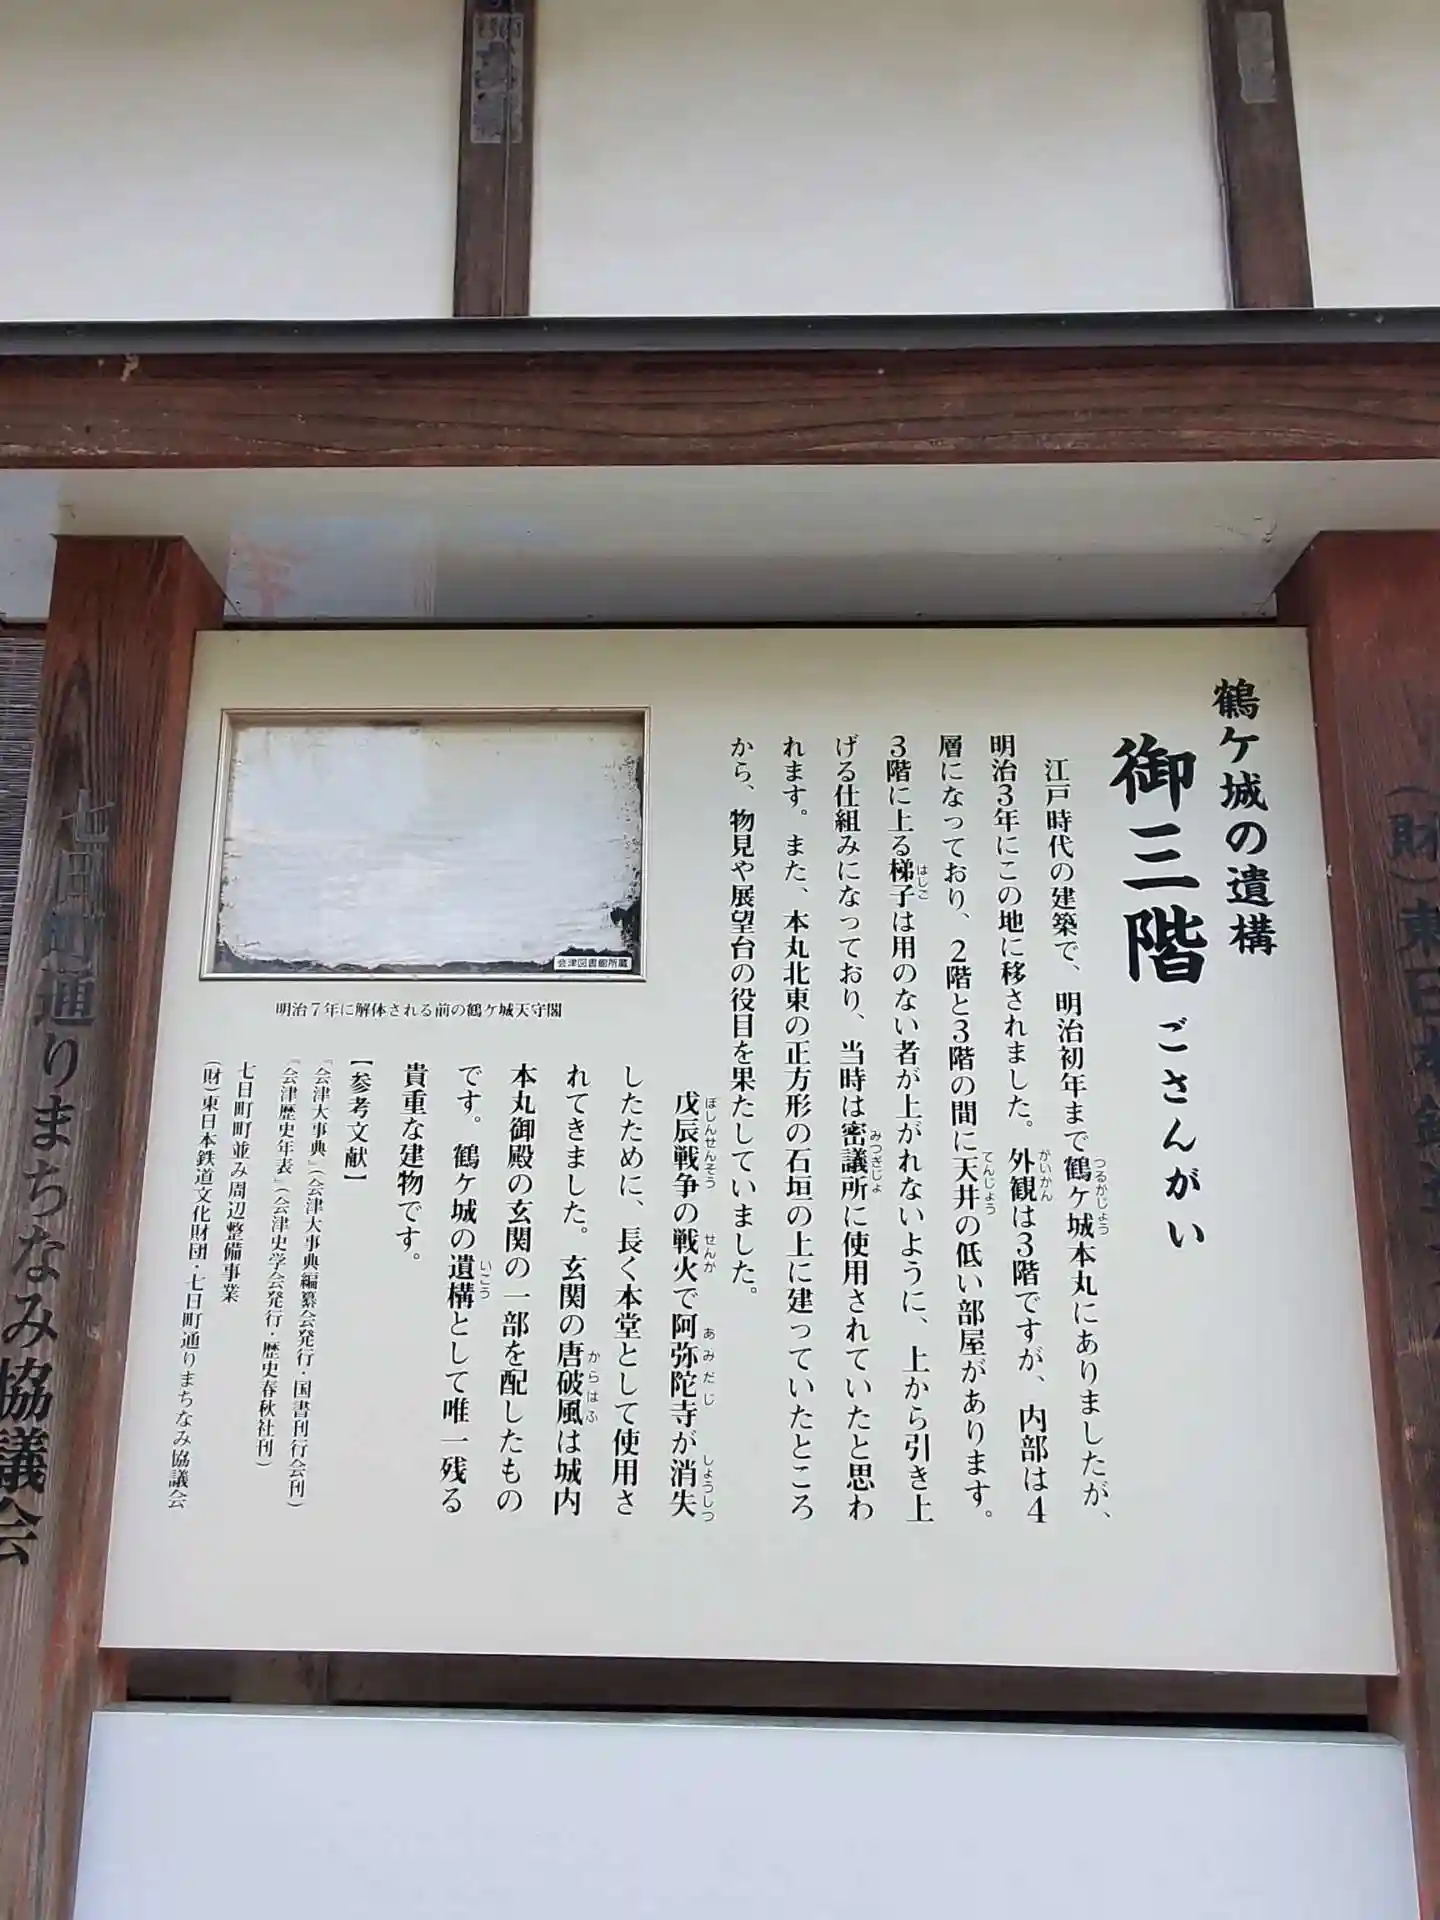 鶴ケ城の遺構
御三階 ごさんがい
江戸時代の建築で、明治初年まで鶴ケ城本丸にありましたが、
つるがじょう
明治3年にこの地に移されました。外観は3階ですが、内部は4
がいかん
層になっており、2階と3階の間に天井の低い部屋があります。
てんじょう
3階に上る梯子は用のない者が上がれないように、上から引き上
はしご
げる仕組みになっており、当時は密議所に使用されていたと思わ
みつぎじょ
れます。また、本丸北東の正方形の石垣の上に建っていたところ
から、物見や展望台の役目を果たしていました。
戊辰戦争の戦火で阿弥陀寺が消失
ぼしんせんそう せんか あみだじ しょうしつ
したために、長く本堂として使用さ
れてきました。玄関の唐破風は城内
からはふ
本丸御殿の玄関の一部を配したもの
です。鶴ケ城の遺構として唯一残る
いこう
貴重な建物です。
【参考文献】
『会津大事典』（会津大事典編纂会発行・国書刊行会刊）
『会津歴史年表』（会津史学会発行・歴史春秋社刊）
七日町町並み周辺整備事業
（財）東日本鉄道文化財団・七日町通りまちなみ協議会
会津図書館所蔵
明治7年に解体される前の鶴ケ城天守閣
七日町通りまちなみ協議会